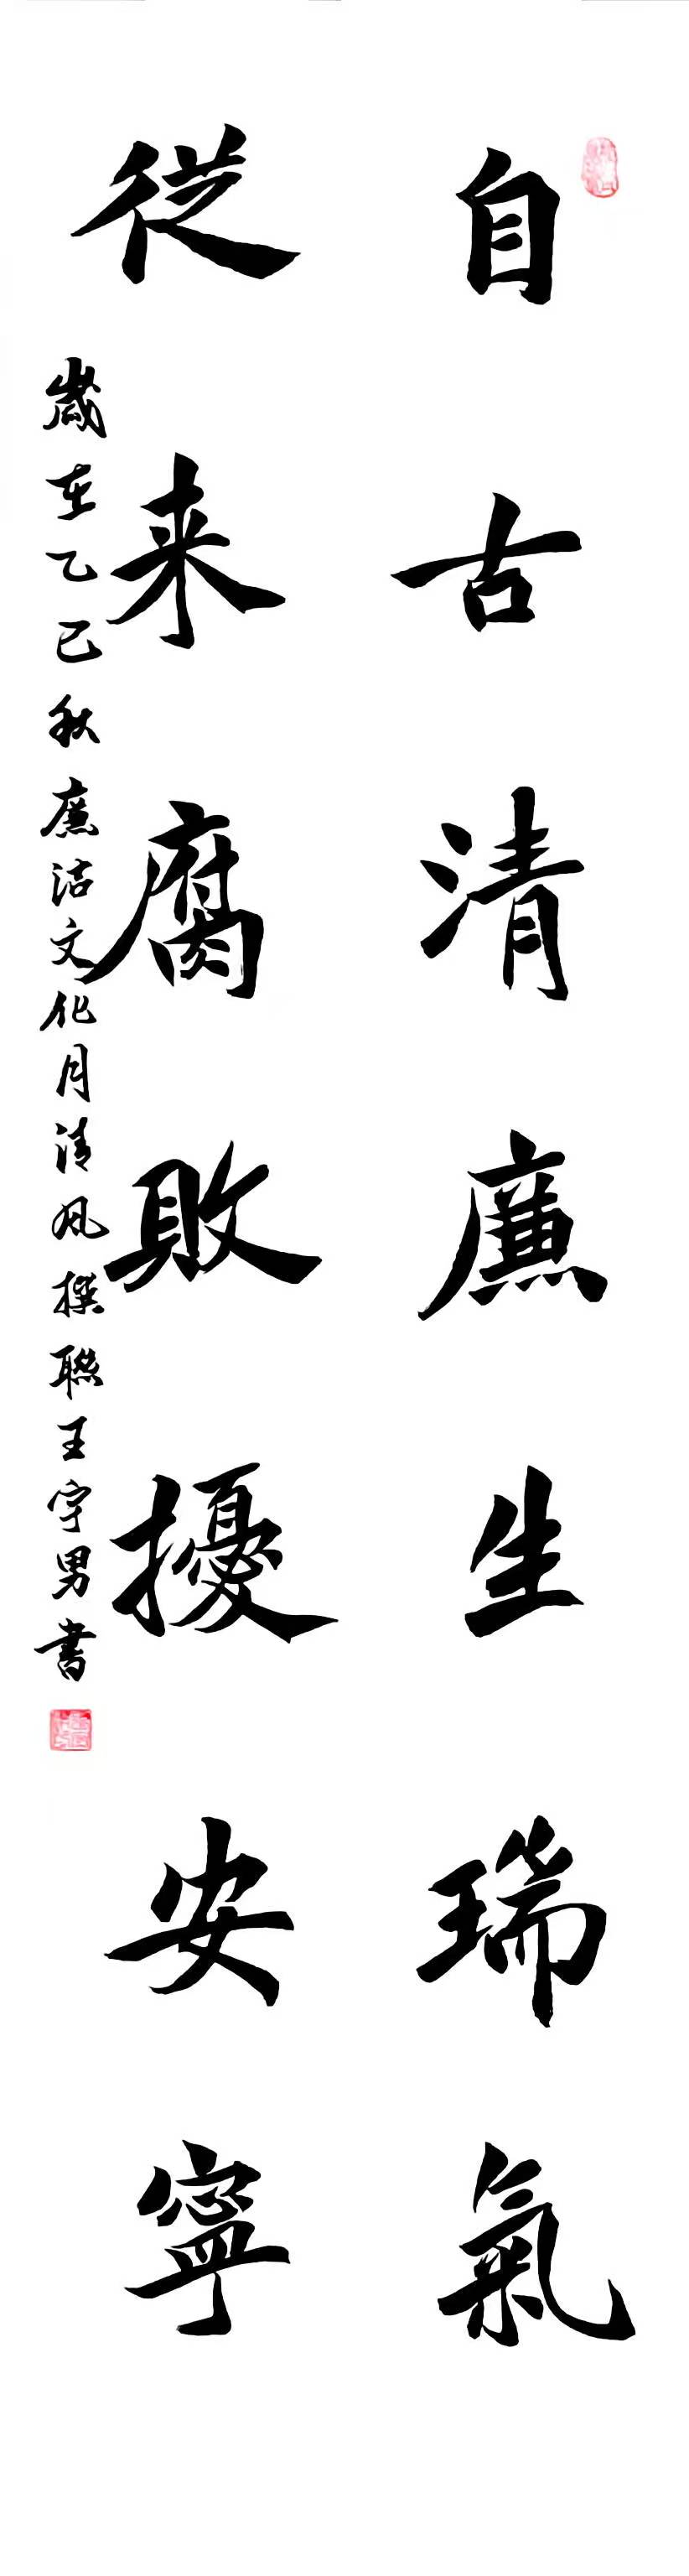 自古清廉生瑞氣
從来腐敗擾安寧
歲在乙巳秋廉洁文化月清风撰聯王宇男書